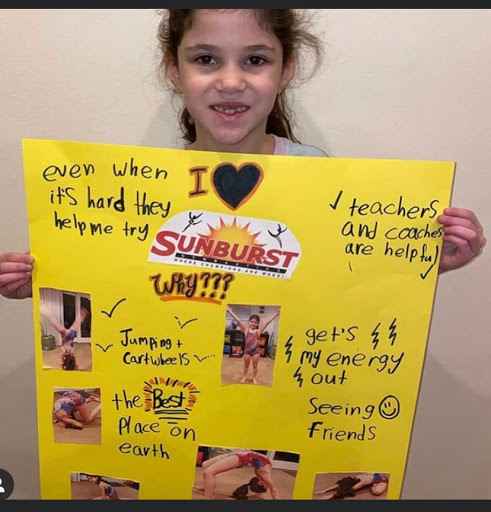 even when
it's hard they
help me try
I ♥
SUNBURST
GYMNASTICS
WHERE CHAMPIONS ARE MADE!
Why???
✓ teachers
and coaches
are helpful
✓
Jumping +
cartwheels
get's
my energy
out
the Best
Place on
earth
Seeing ☺
friends